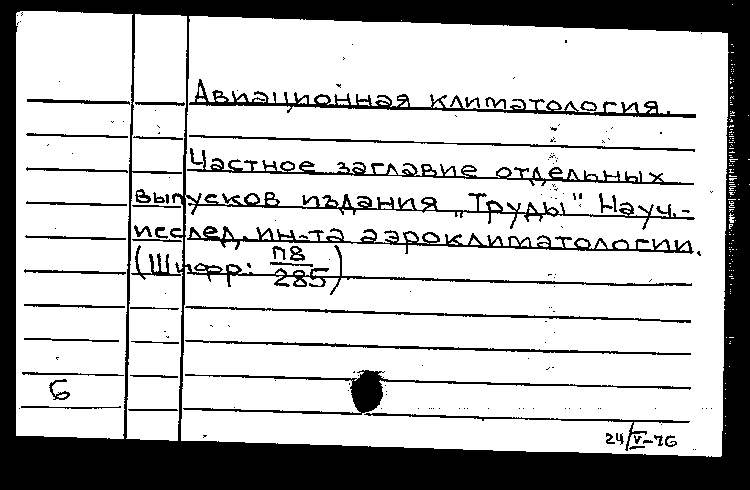 Авиационная климатология.
Частное заглавие отдельных
выпусков издания „Труды" Науч.-
исслед. ин-та аэроклиматологии.
(Шифр: П8/285)
Б
24/V-76